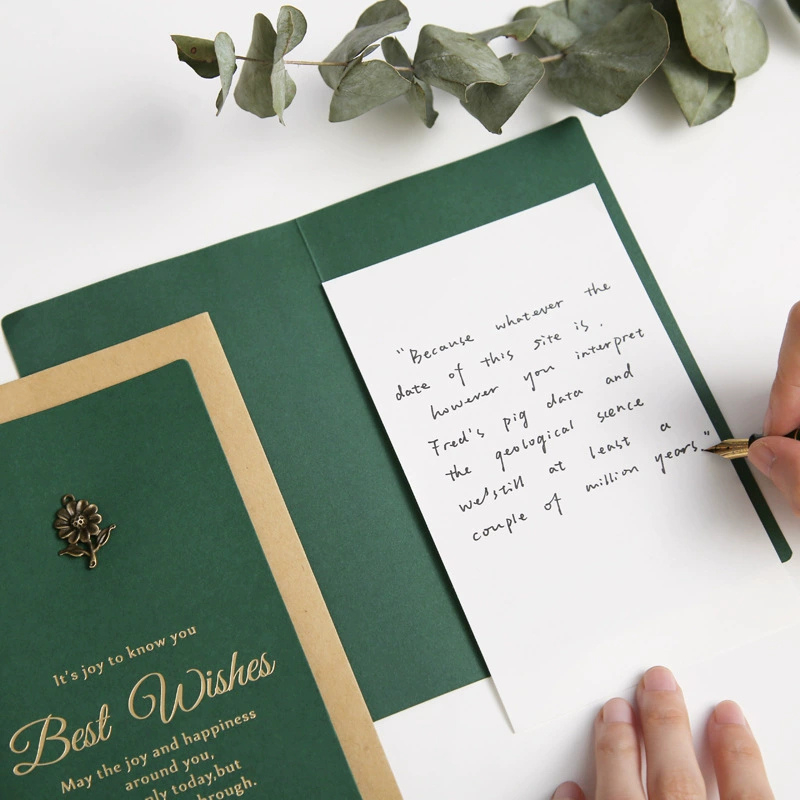 "Because whatever the
date of this site is.
however you interpret
Fred's pig data and
the geological science
we'still at least a
couple of million years."
It's joy to know you
Best Wishes
May the joy and happiness
around you,
today,but